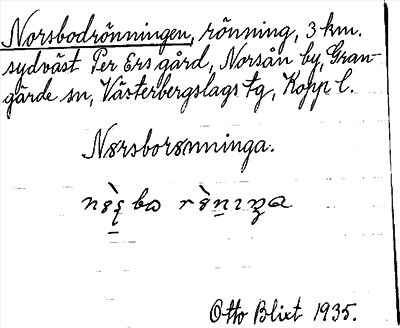 Norsbodrönningen, rönning, 3 km.
sydväst Per Ers gård, Norsån by, Gran-
gärde sn, Västerbergslags tg, Kopp l.
Nørsborønninga.
Otto Blixt 1935.